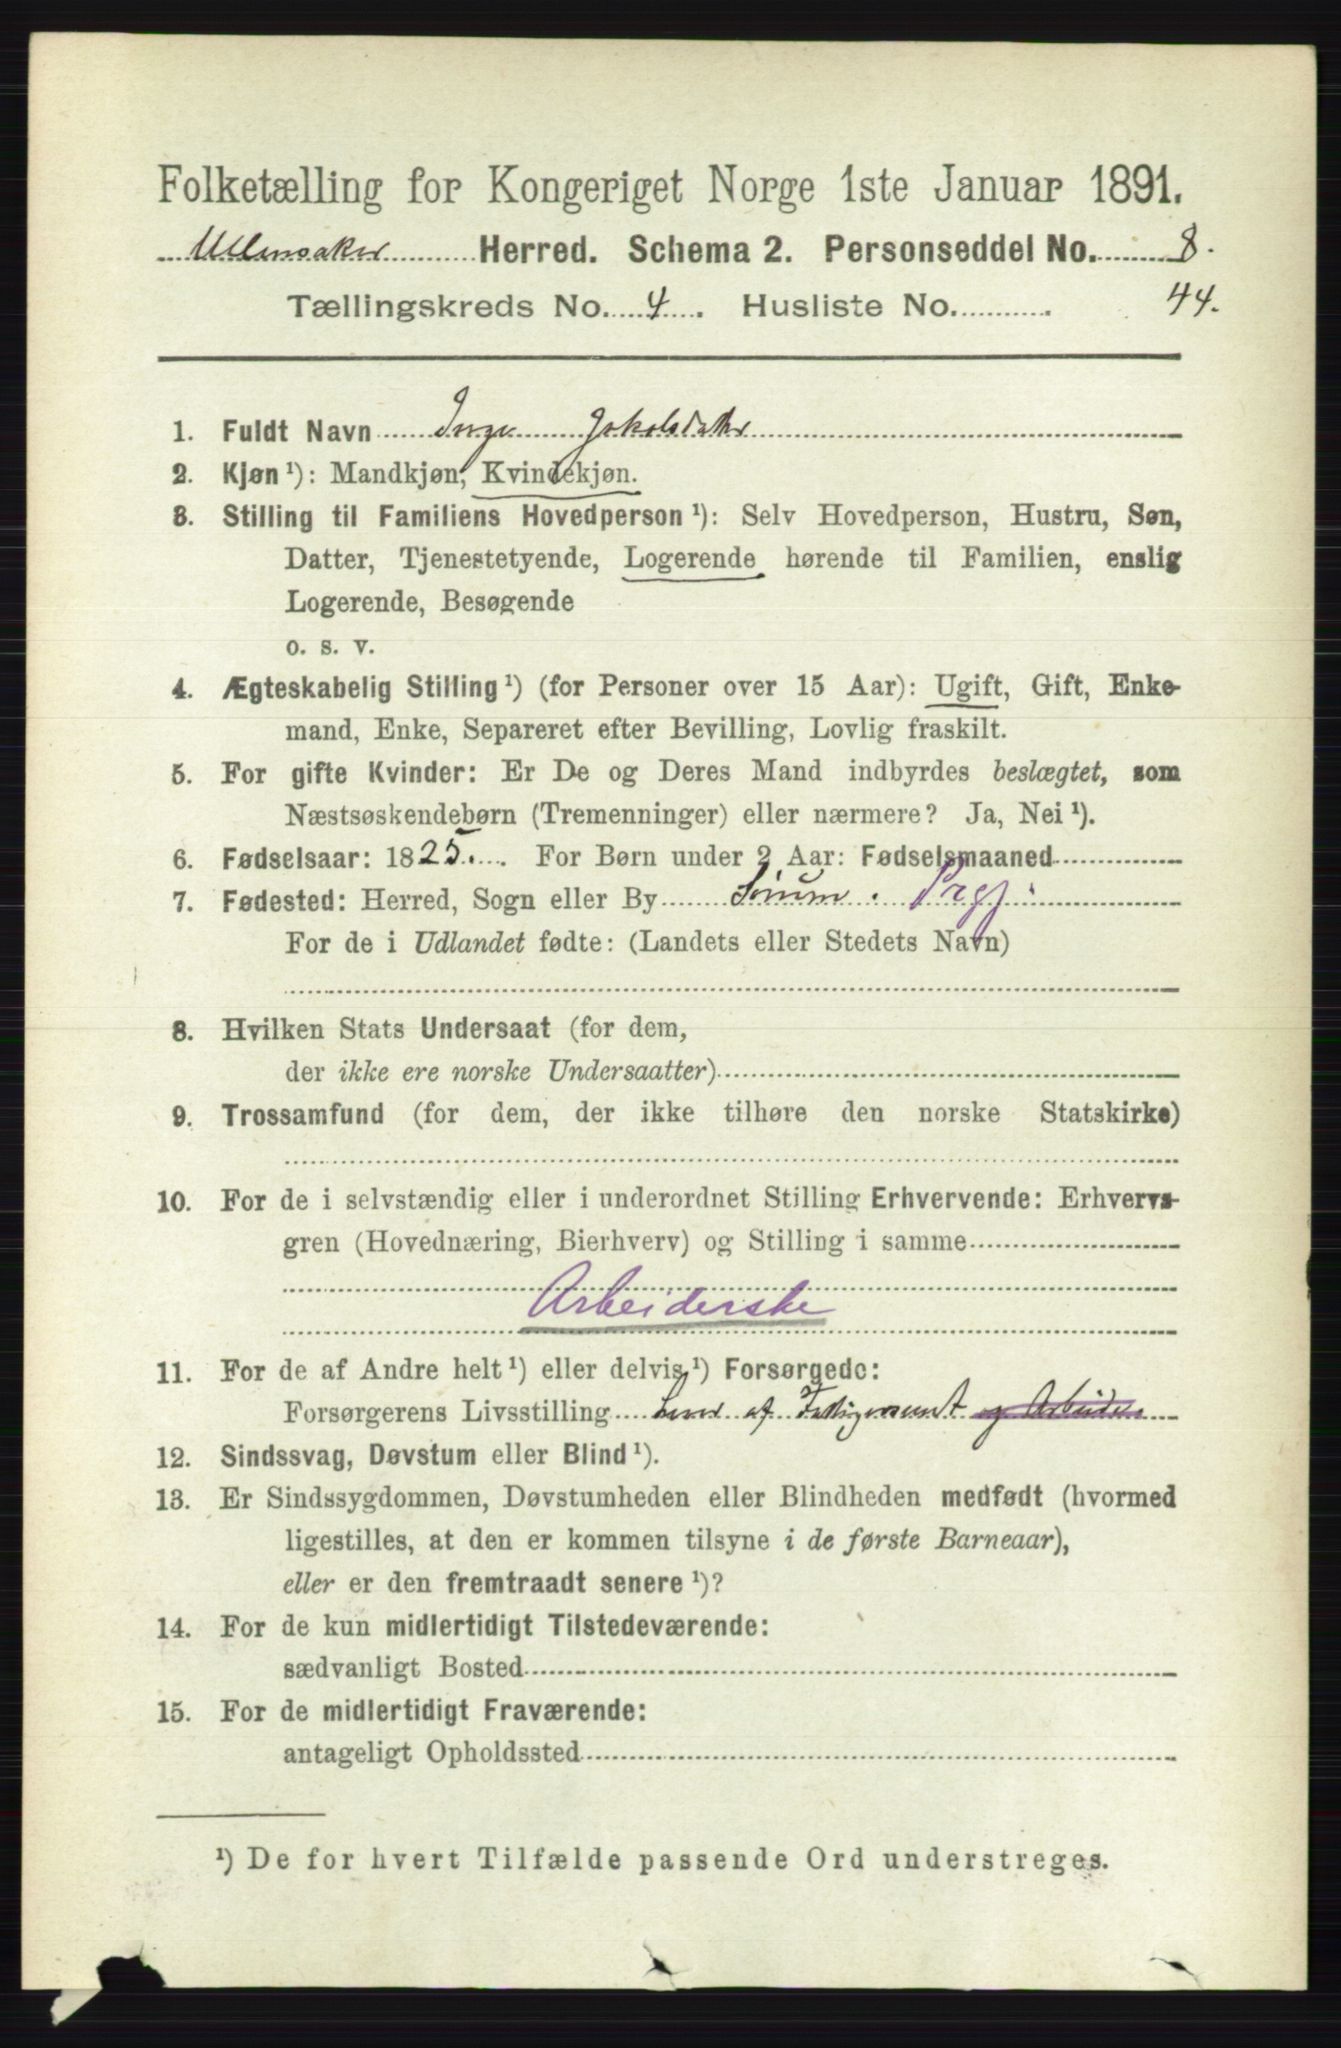 Folketælling for Kongeriget Norge 1ste Januar 1891.
Ullensaker Herred. Schema 2. Personseddel No. 8.
Tællingskreds No. 4. Husliste No. 44.
1. Fuldt Navn Inge Jakobsdatter
2. Kjøn ¹): Mandkjøn, Kvindekjøn.
3. Stilling til Familiens Hovedperson ¹): Selv Hovedperson, Hustru, Søn,
Datter, Tjenestetyende, Logerende hørende til Familien, enslig
Logerende, Besøgende
o. s. v.
4. Ægteskabelig Stilling ¹) (for Personer over 15 Aar): Ugift, Gift, Enke-
mand, Enke, Separeret efter Bevilling, Lovlig fraskilt.
5. For gifte Kvinder: Er De og Deres Mand indbyrdes beslægtet, som
Næstsøskendebørn (Tremenninger) eller nærmere? Ja, Nei ¹).
6. Fødselsaar: 1825. For Børn under 2 Aar: Fødselsmaaned
7. Fødested: Herred, Sogn eller By Sørum. Prgj.
For de i Udlandet fødte: (Landets eller Stedets Navn)
8. Hvilken Stats Undersaat (for dem,
der ikke ere norske Undersaatter)
9. Trossamfund (for dem, der ikke tilhøre den norske Statskirke)
10. For de i selvstændig eller i underordnet Stilling Erhvervende: Erhvervs-
gren (Hovednæring, Bierhverv) og Stilling i samme
Arbeiderske
11. For de af Andre helt ¹) eller delvis ¹) Forsørgede:
Forsørgerens Livsstilling Lever af Fattigunderst og Arbeide
12. Sindssvag, Døvstum eller Blind ¹).
13. Er Sindssygdommen, Døvstumheden eller Blindheden medfødt (hvormed
ligestilles, at den er kommen tilsyne i de første Barneaar),
eller er den fremtraadt senere ¹)?
14. For de kun midlertidigt Tilstedeværende:
sædvanligt Bosted
15. For de midlertidigt Fraværende:
antageligt Opholdssted
¹) De for hvert Tilfælde passende Ord understreges.